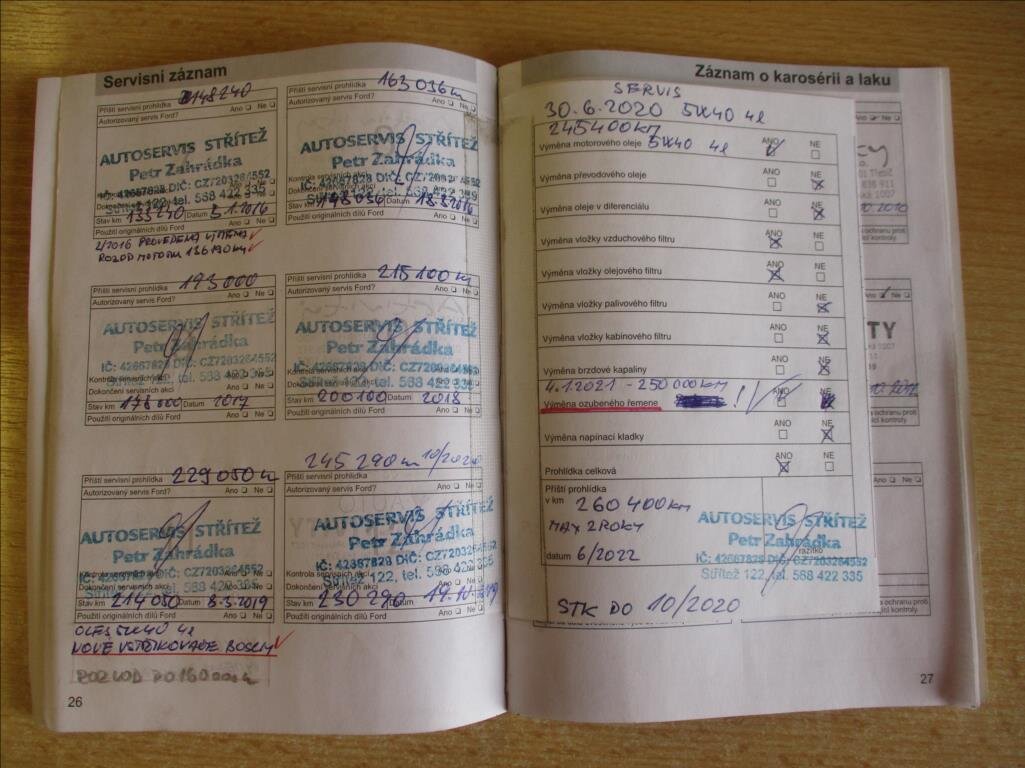 Servisní záznam
Příští servisní prohlídka 148240
Autorizovaný servis Ford? Ano Ne
AUTOSERVIS STŘÍTEŽ
Petr Zahrádka
IČ: 42667828 DIČ: CZ7203264552
Střítež 122, tel. 588 422 335
Stav km 133240 Datum 5.1.2016
Použití originálních dílů Ford Ano Ne
2/2016 PROVEDENA VÝMĚNA
ROZVOD MOTORU 136190 km
Příští servisní prohlídka 163 036 km
Autorizovaný servis Ford? Ano Ne
AUTOSERVIS STŘÍTEŽ
Petr Zahrádka
Kontrola servisních akcí
IČ: 42667828 DIČ: CZ7203264552
Střítež 122, tel. 588 422
Stav km 148 036 Datum
Použití originálních dílů Ford Ano Ne
Příští servisní prohlídka 193000
Autorizovaný servis Ford? Ano Ne
AUTOSERVIS STŘÍTEŽ
Petr Zahrádka
IČ: 42667828 DIČ: CZ7203264552
Kontrola servisních akcí
Střítež 122, tel. 588 422 335
Dokončení servisních akcí
Stav km 178000 Datum 2017
Použití originálních dílů Ford Ano Ne
Příští servisní prohlídka 215100 km
Autorizovaný servis Ford? Ano Ne
AUTOSERVIS STŘÍTEŽ
Petr Zahrádka
IČ: 42667828 DIČ: CZ7203264552
Střítež 122, tel. 588 422 335
Dokončení servisních akcí
Stav km 200100 Datum 2018
Použití originálních dílů Ford Ano Ne
229 050 km
Příští servisní prohlídka
Autorizovaný servis Ford? Ano Ne
AUTOSERVIS STŘÍTEŽ
Petr Zahrádka
IČ: 42667828 DIČ: CZ7203264552
Střítež 122, tel. 588 422 335
Dokončení servisních akcí
Stav km 214 050 Datum 8.3.2019
Použití originálních dílů Ford Ano Ne
OLEJ 5W40 4l
NOVÉ VSTŘIKOVAČE BOSCH
ROZVOD DO 160 000 km
245 290 km 10/2020
Příští servisní prohlídka
Autorizovaný servis Ford? Ano Ne
AUTOSERVIS STŘÍTEŽ
Petr Zahrádka
IČ: 42667828 DIČ: CZ7203264552
Kontrola servisních akcí
Střítež 122, tel. 588 422 335
Dokončení servisních akcí
Stav km 230 290 Datum 19.10.2019
Použití originálních dílů Ford Ano Ne
26
Záznam o karosérii a laku
SERVIS
30.6.2020 5W40 4l
245400 km
Výměna motorového oleje 5W40 4l ANO NE
Výměna převodového oleje ANO NE
Výměna oleje v diferenciálu ANO NE
Výměna vložky vzduchového filtru ANO NE
Výměna vložky olejového filtru ANO NE
Výměna vložky palivového filtru ANO NE
Výměna vložky kabinového filtru ANO NE
Výměna brzdové kapaliny ANO NE
4.1.2021 - 250 000 km
Výměna ozubeného řemene ! ANO NE
Výměna napínací kladky ANO NE
Prohlídka celková ANO NE
Příští prohlídka
v km 260 400 km
MAX 2 ROKY
datum 6/2022
AUTOSERVIS STŘÍTEŽ
Petr Zahrádka
razítko
IČ: 42667828 DIČ: CZ7203264552
Střítež 122, tel. 588 422 335
STK DO 10/2020
Ano Ne
ochranu proti
kontroly.
Ano Ne
ochranu proti
kontroly.
a ochranu proti
kontroly.
27